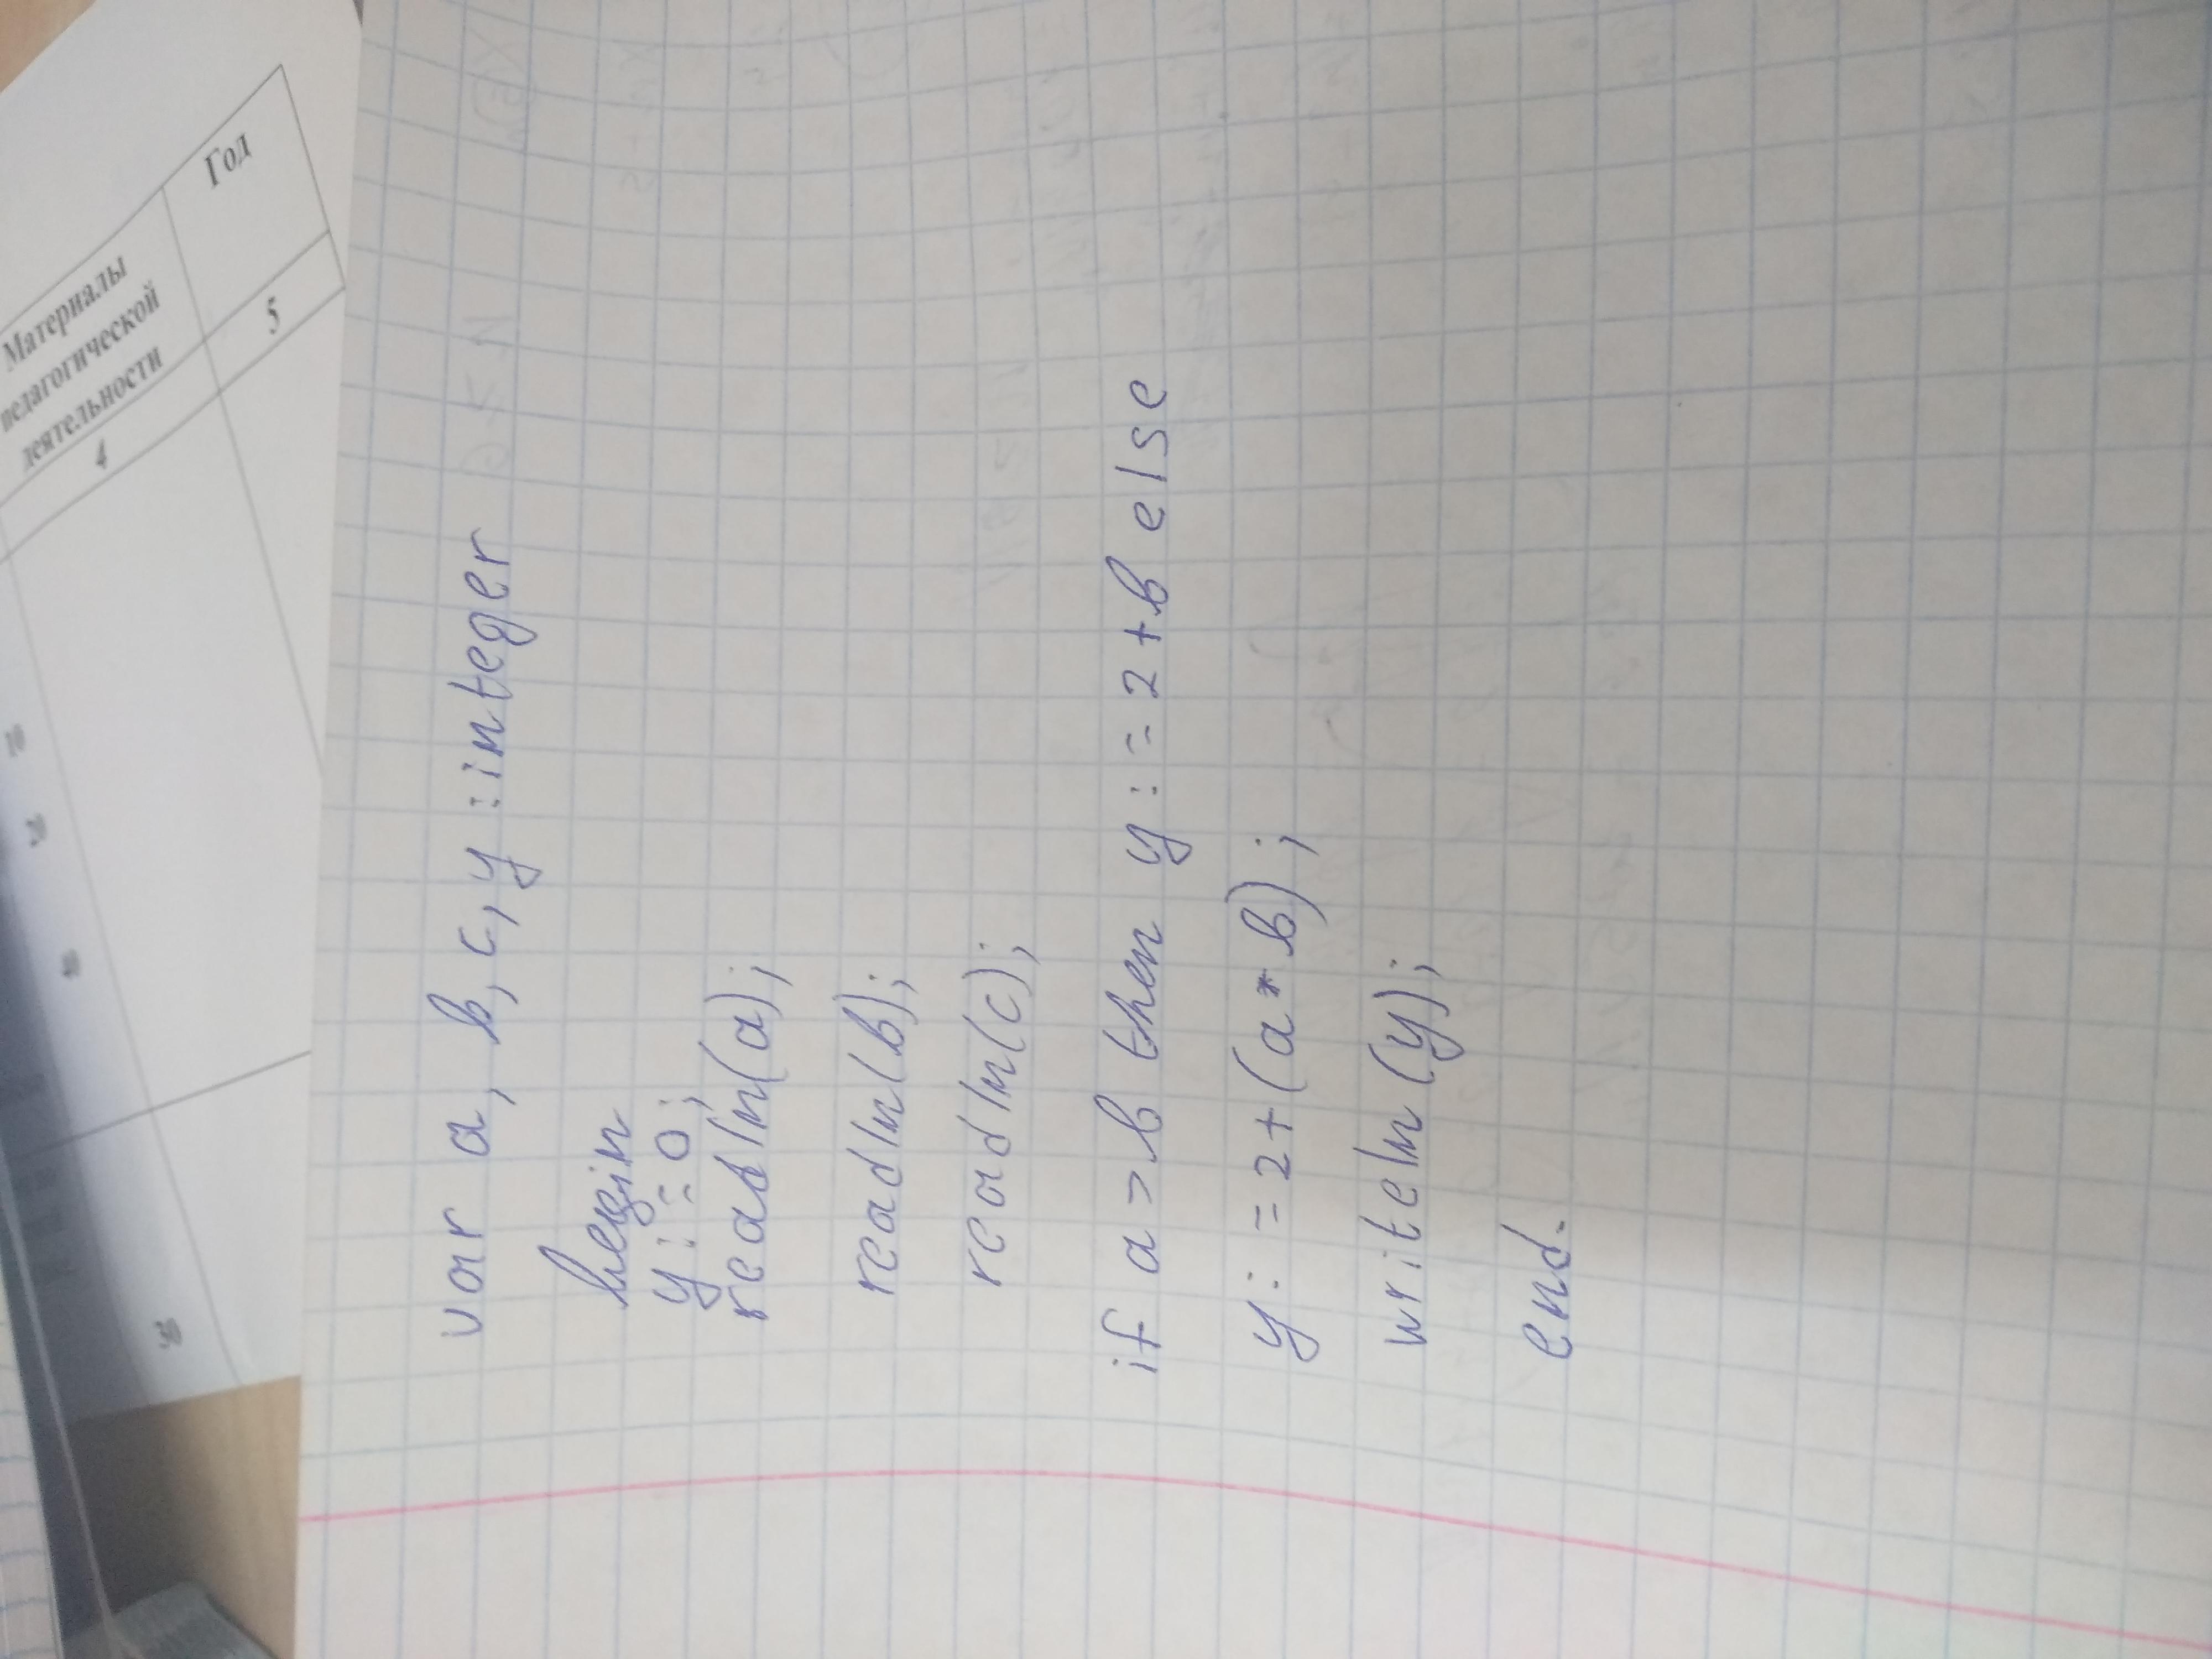 var a, b, c, y : integer
begin
y := 0;
readln(a);
readln(b);
readln(c);
if a > b then y := 2 + b else
y := 2 + (a * b);
writeln(y);
end.
Материалы
педагогической
деятельности
Год
4
5
10
20
40
30